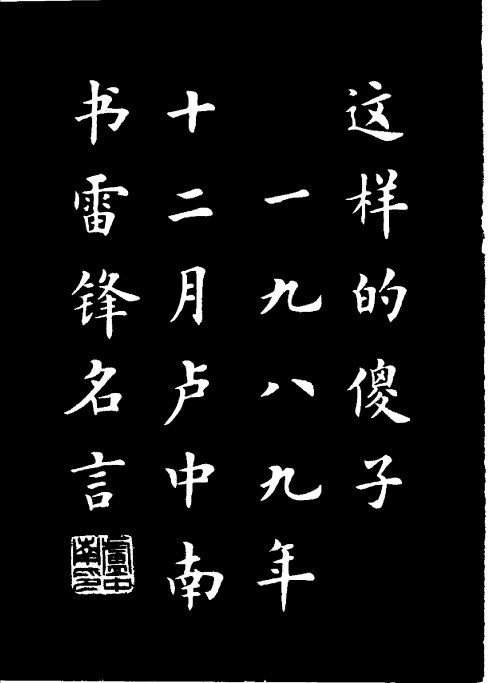 这样的傻子
一九八九年
十二月卢中南
书雷锋名言
盧中南印